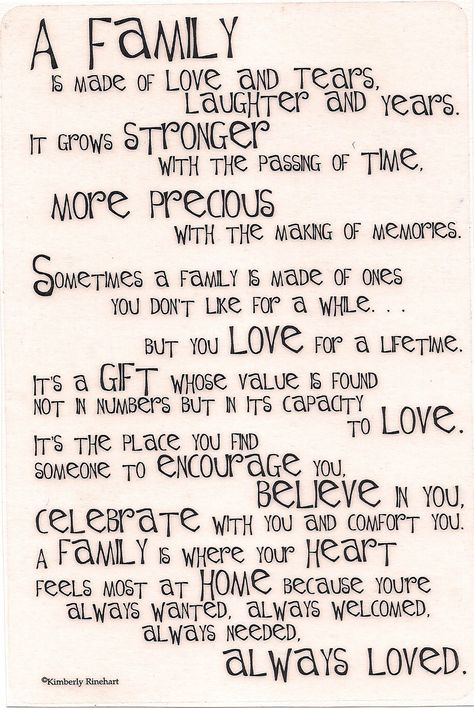 A FAMILY
IS MADE OF LOVE AND TEARS,
LAUGHTER AND YEARS.
IT GROWS STRONGER
WITH THE PASSING OF TIME,
MORE PRECIOUS
WITH THE MAKING OF MEMORIES.
SOMETIMES A FAMILY IS MADE OF ONES
YOU DON'T LIKE FOR A WHILE. . .
BUT YOU LOVE FOR A LIFETIME.
IT'S A GIFT WHOSE VALUE IS FOUND
NOT IN NUMBERS BUT IN ITS CAPACITY
TO LOVE.
IT'S THE PLACE YOU FIND
SOMEONE TO ENCOURAGE YOU,
BELIEVE IN YOU,
CELEBRATE WITH YOU AND COMFORT YOU.
A FAMILY IS WHERE YOUR HEART
FEELS MOST AT HOME BECAUSE YOU'RE
ALWAYS WANTED, ALWAYS WELCOMED,
ALWAYS NEEDED,
ALWAYS LOVED.
©Kimberly Rinehart